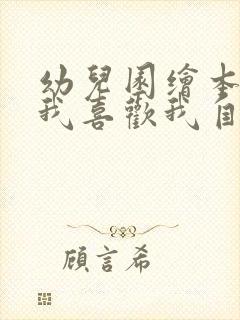 幼兒園繪本
我喜歡我自
顧言希